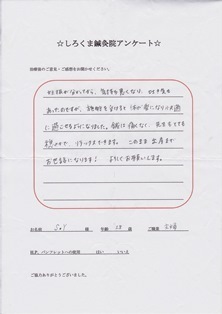 ☆しろくま鍼灸院アンケート☆
治療後のご意見・ご感想をお聞かせください。
妊娠が分かってから、気持ち悪くなり、吐き気も
あったのですが、施術を受けると体が楽になり快適
に過ごせるようになりました。鍼は痛くなく、先生もとても
親切で、行ってきてます。このまま出産まで
お世話になります！よろしくお願いします。
お名前 様 年齢 歳 ご職業 主婦
HP、パンフレットへの掲載 はい いいえ
ご協力ありがとうございました。